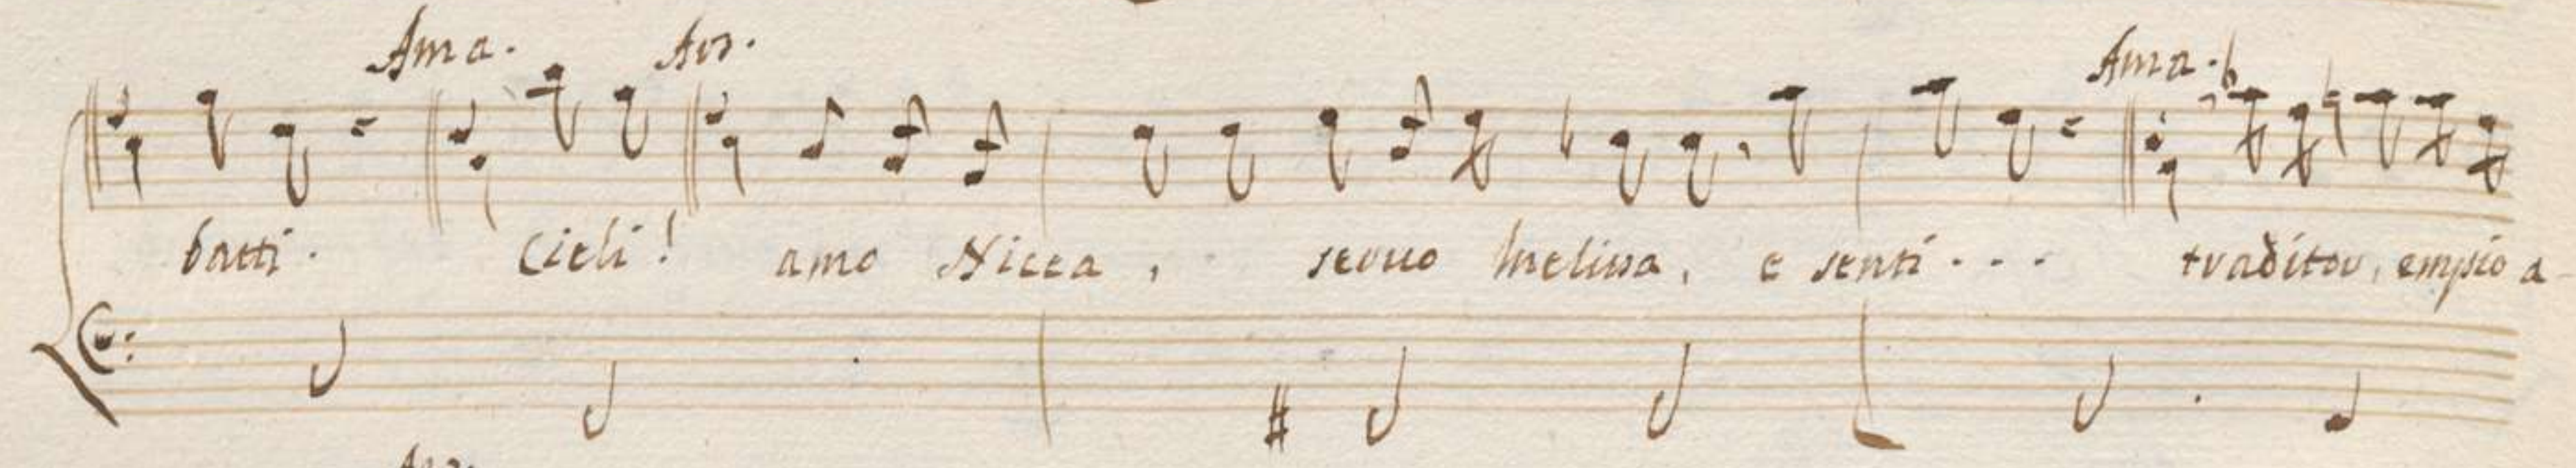 Ama. Aur. Ama.
batti. Cieli! amo Nicea, seruo Melissa, e senti... traditor, empio a-